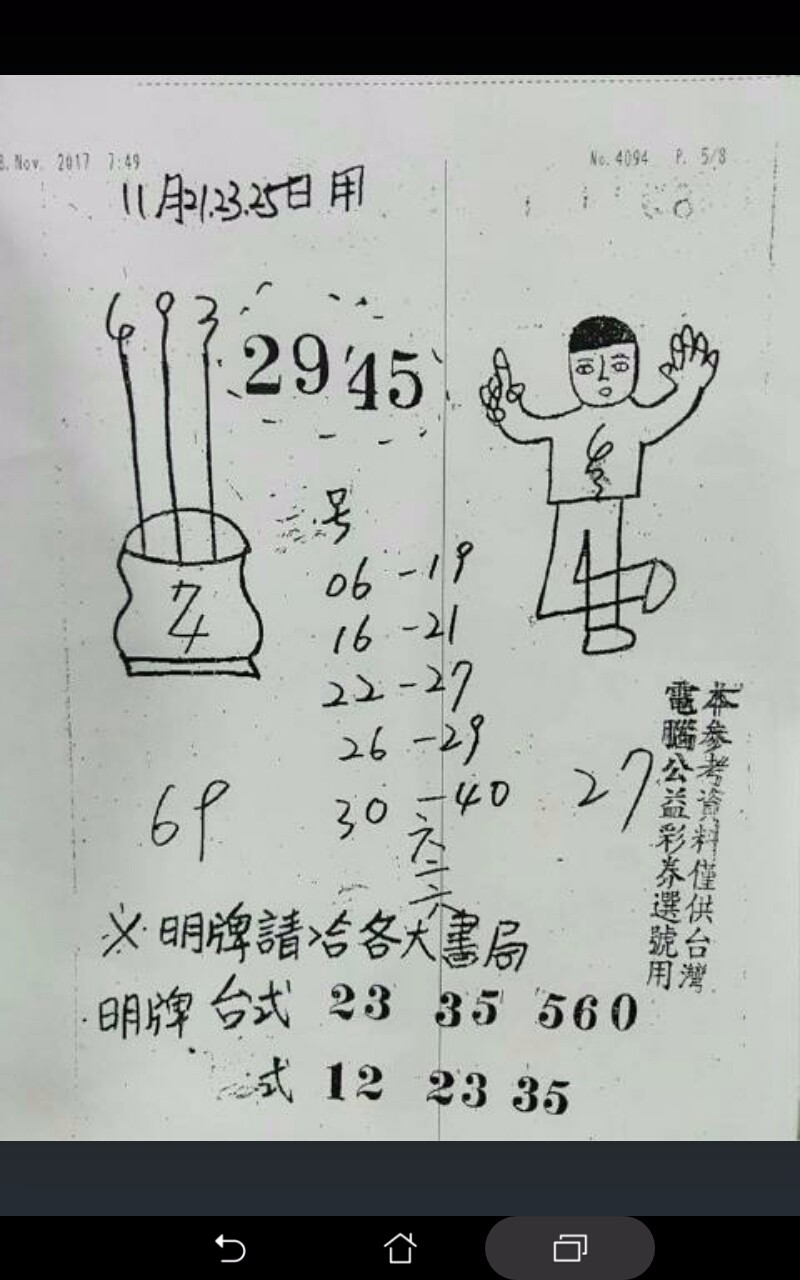 8.Nov. 2017 7:49
No.4094 P. 5/8
11月21.23.25日用
6 9 3
29 45
号
06-19
16-21
22-27
26-29
30-40
六二六
74
69
27
本參考資料僅供台灣
電腦公益彩券選號用
※明牌請洽各大書局
明牌 台式 23 35 560
式 12 23 35